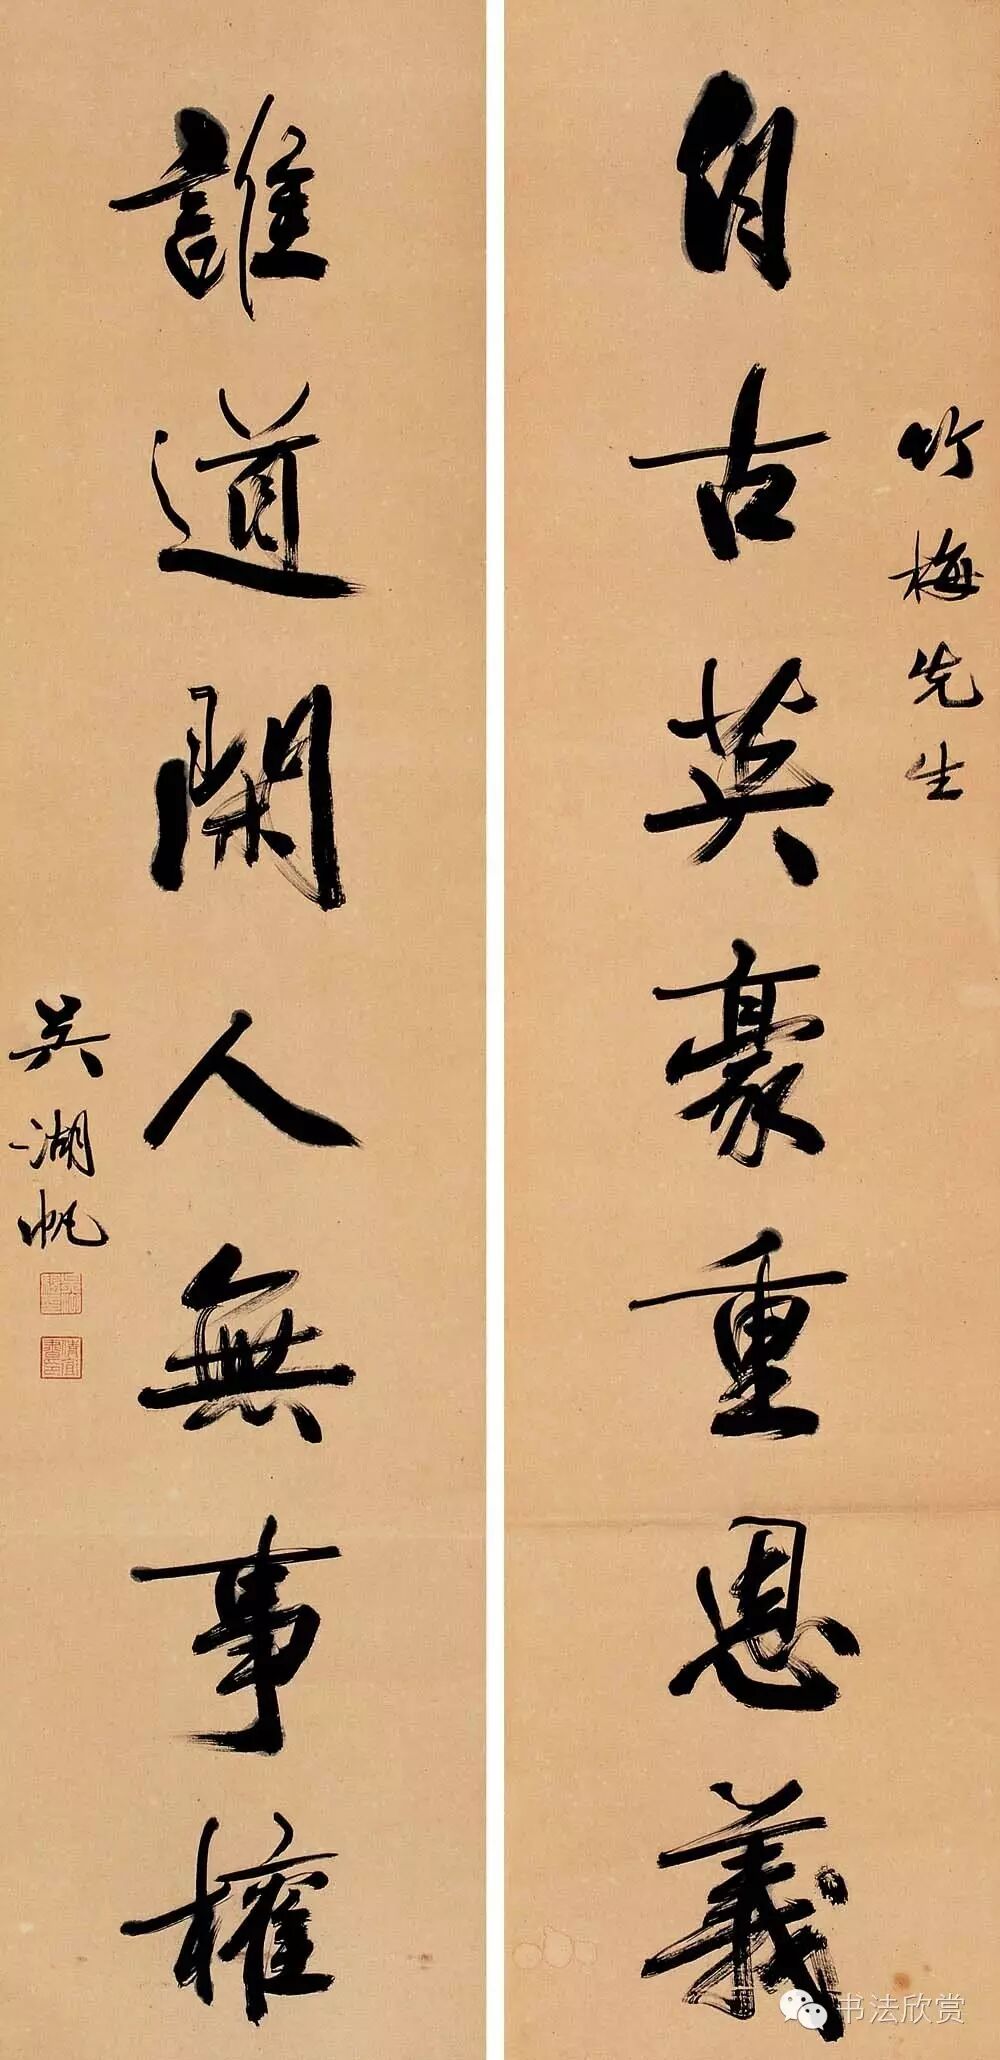 竹梅先生
自古英豪重恩義
誰道閑人無事權
吳湖帆
书法欣赏